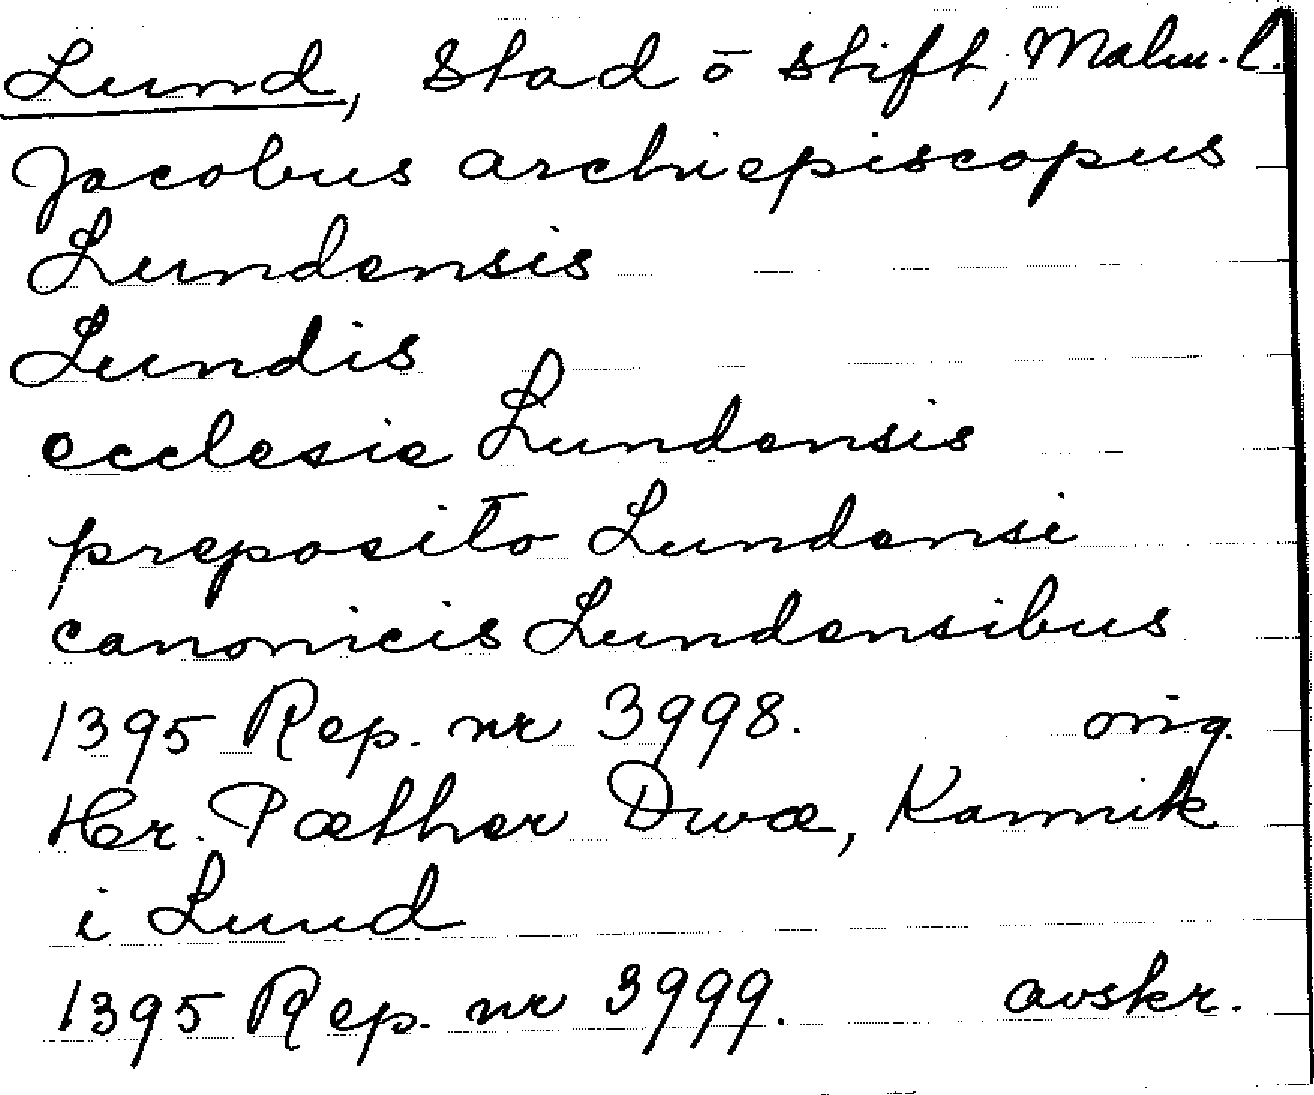 Lund, Stad ō stift, Malm. l.
Jacobus archiepiscopus
Lundensis
Lundis
ecclesie Lundensis
preposito Lundensi
canonicis Lundensibus
1395 Rep. nr 3998. orig.
Her. Pæther Dwæ, Kannik
i Lund
1395 Rep. nr 3999. avskr.